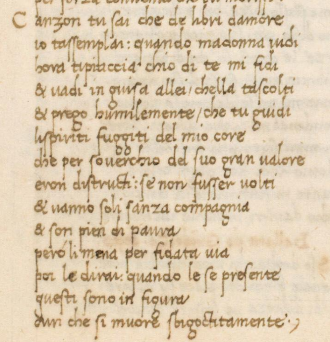 Canzon tu sai che de libri damore
io tassemplai: quando madonna uidi
hora ti piaccia chio di te mi fidi
& uadi in guisa allei / chella tascolti
& prego humilemente / che tu guidi
lispiriti fuggiti del mio core
che per souerchio del suo gran ualore
eron distructi: se non fusser uolti
& uanno soli sanza compagnia
& son pien di paura
pero li mena per fidata uia
poi le dirai: quando le se presente
questi sono in figura
dun che si muore sbigoctitamente.